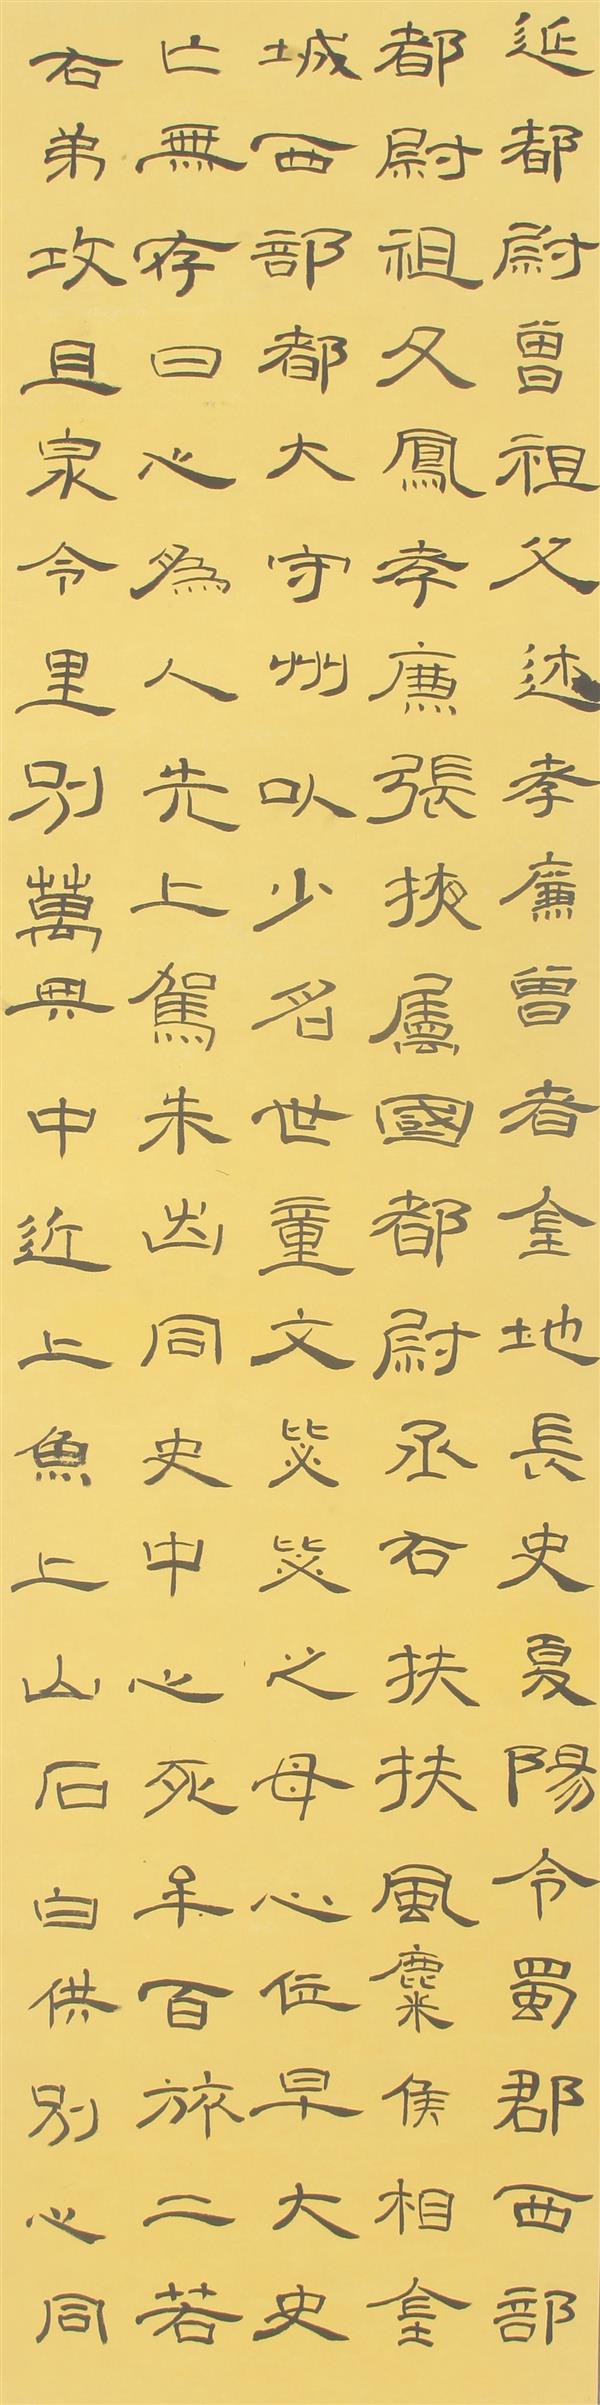 延都尉曾祖父述孝廉曾者金地長史夏陽令蜀郡西部
都尉祖父鳳孝廉張掖屬國都尉丞右扶扶風麋侯相金
城西部都大守州以少名世童文毖毖之母心位早大史
亡無存曰心為人先上駕朱同史中心死百旅二若
右弟攻且泉令里別萬中近上魚上山石白供別心同